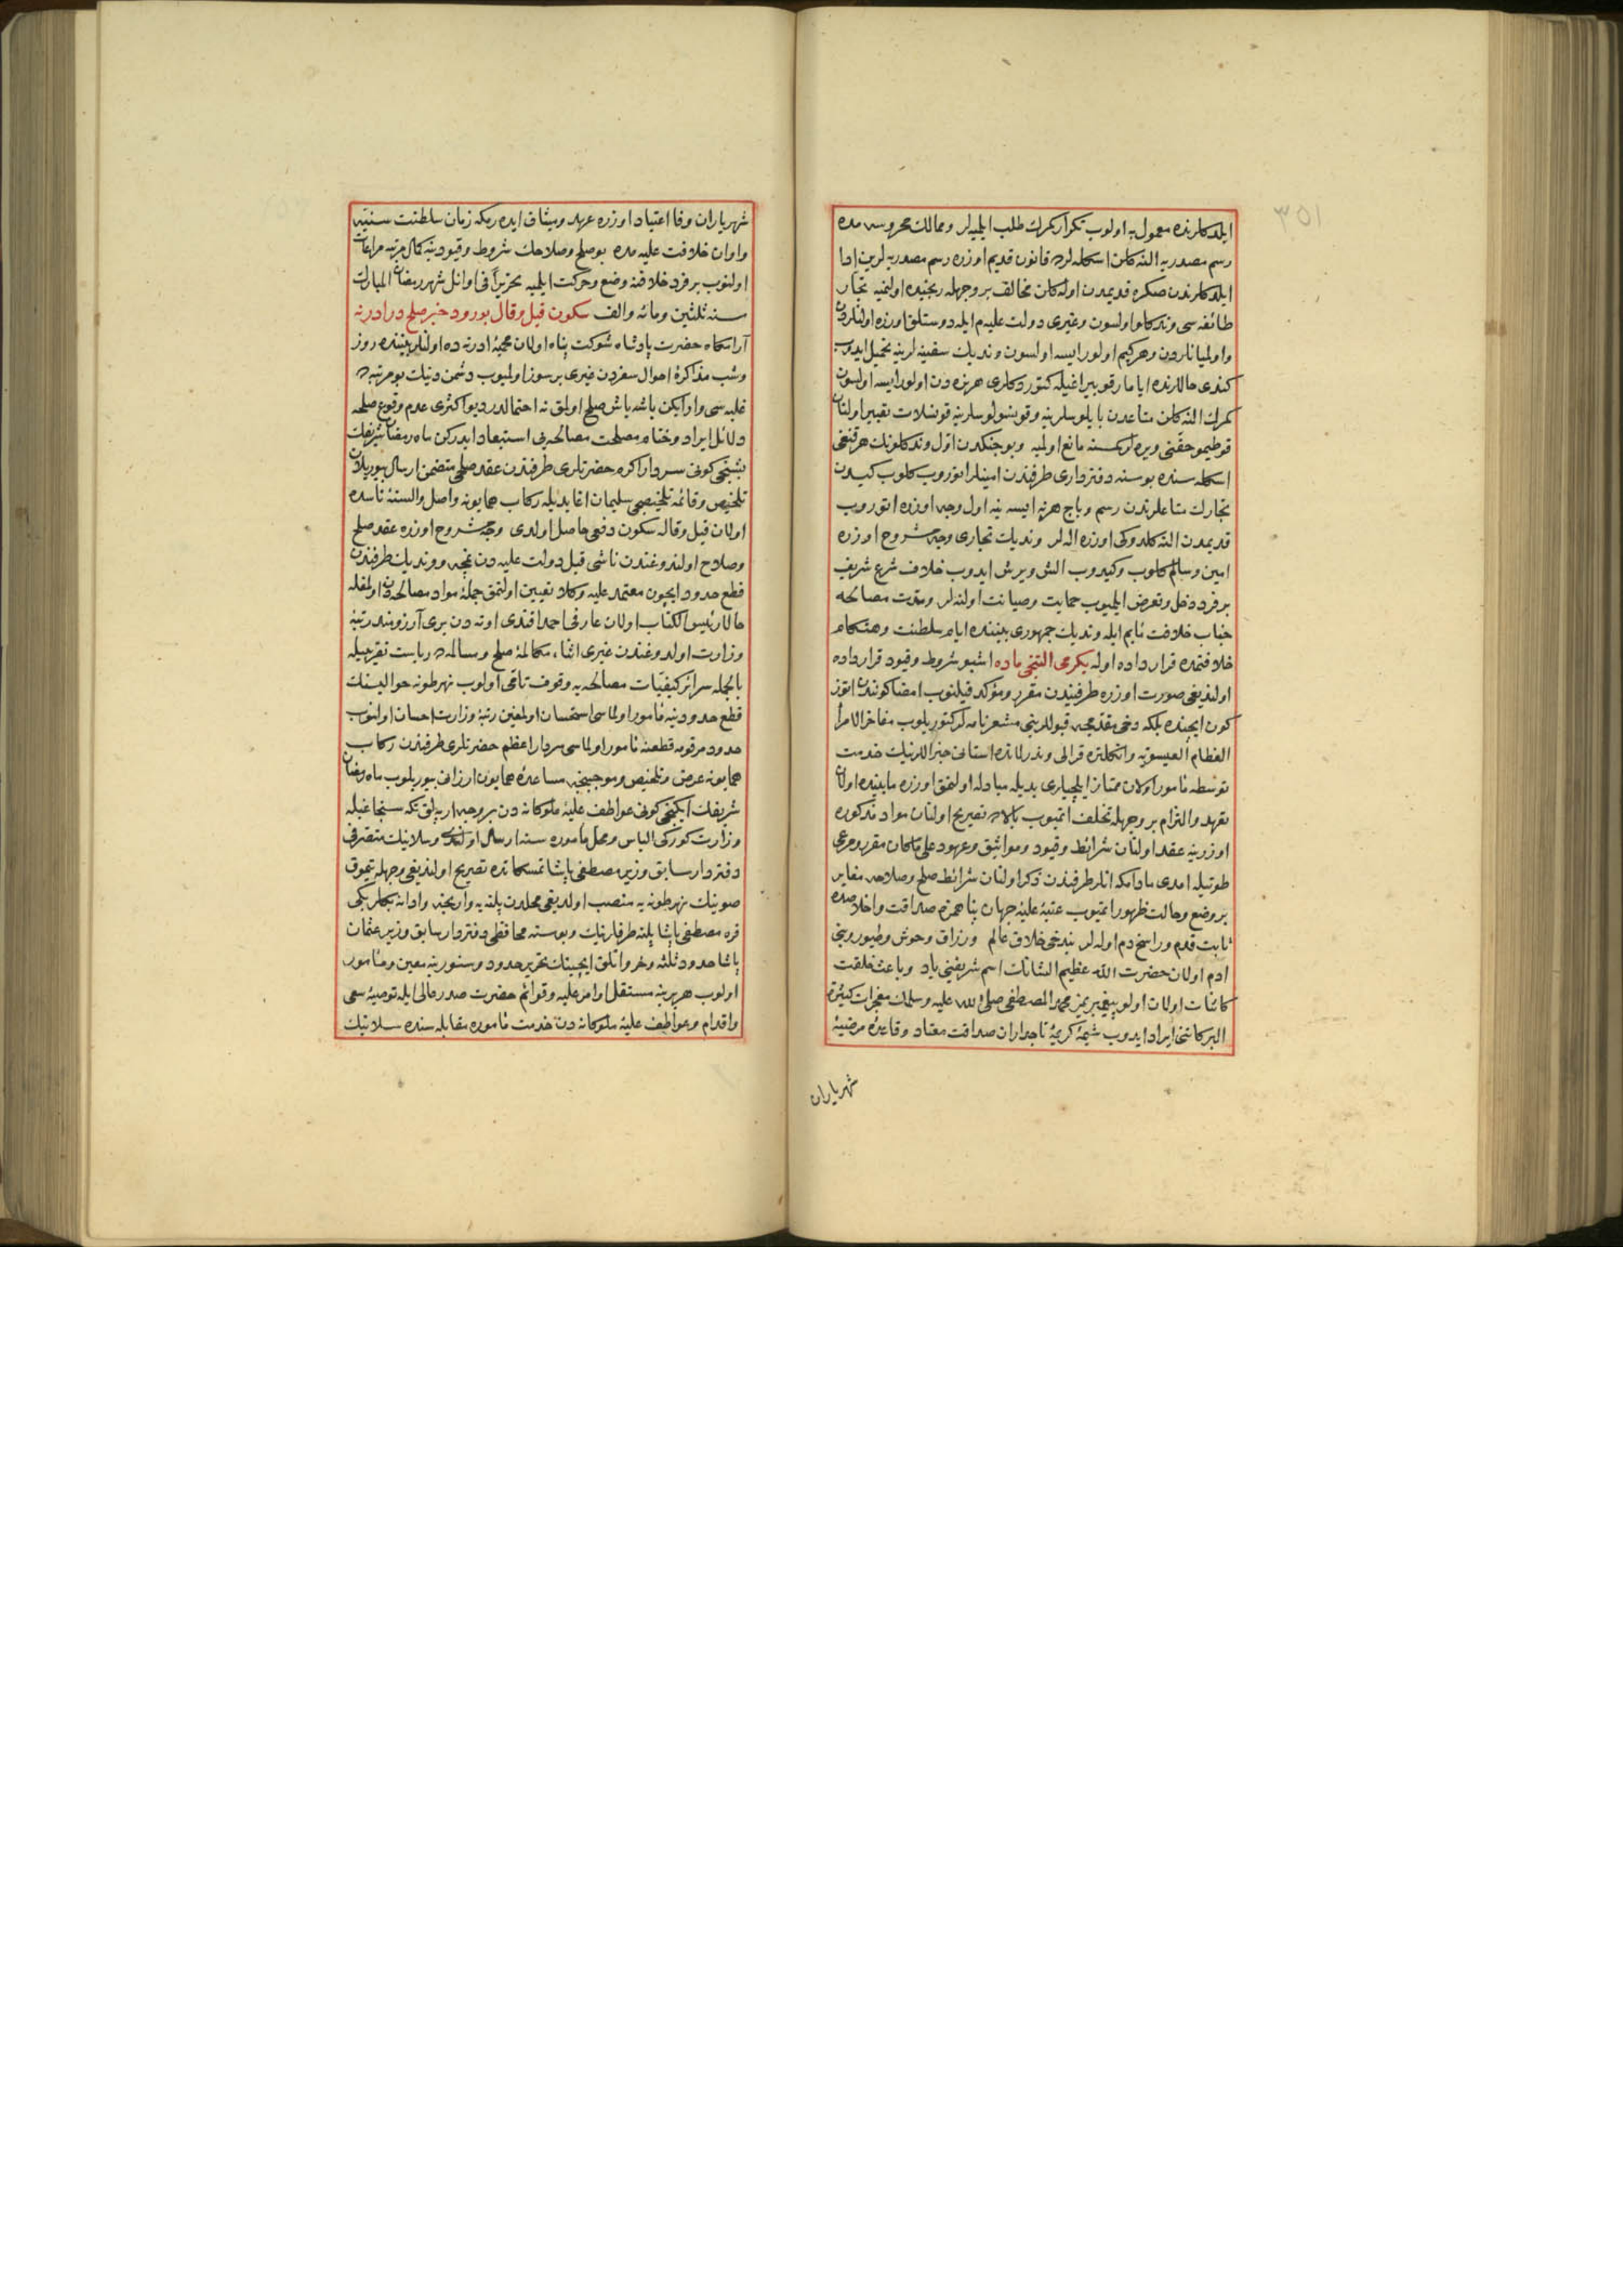 ٣٥١
ایلدکلرنده معمول به اولوب تکرار کمرك طلب ایلمیه لر وممالك محروسه مده
رسم مصدریه النه کلن اسکله لرده قانون قدیم اوزره رسم مصدریه لرین ادا
ایلدکلرندن صکره قدیمدن اوله کلن مخالف بر وجهله رنجیده اولنمیه تجار
طائفه سی وندکلو اولسون وغیری دولت علیه م ایله دوستلق اوزره اولنلردن
واولمیانلردن وهر کیم اولور ایسه اولسون وندیك سفینه لرینه تحمیل ایدوب
کندی حاللرنده ایامارقو بیراغیله کتوردکلری هر نه دن اولور ایسه اولسون
کمرك النه کلن متاعدن بایلوسلرینه وقونسولوسلرینه قونسلات تعبیر اولنان
قوطیمو حقنی ویره لر کمسنه مانع اولمیه وبو جنکدن اول وندکلونك هر قنغی
اسکله سنده بوسنه دفترداری طرفندن امینلر اتوروب کلوب کیدن
تجارك متاعلرندن رسم وباج هر نه ایسه ینه اول وجه اوزره اتوروب
قدیمدن النه کلدوکی اوزره اله لر وندیك تجاری وجه مشروح اوزره
امین وسالم کلوب وکیدوب الش ویرش ایدوب خلاف شرع شریف
بر فرد دخل وتعرض ایلمیوب حمایت وصیانت اولنه لر ومدت مصالحه
جناب خلافت مآبم ایله وندیك جمهوری بیننده ایام سلطنت وهنکام
خلافتمده قرارداده اوله یکرمی التنجی ماده اشبو شروط وقیود قرارداده
اولندیغی صورت اوزره طرفیندن مقرر ومؤکد قیلنوب امضا کونندن اوتوز
کون ایچنده بلکه دخی مقدمجه قبوللرینی مشعر نامه لر کتوریلوب مفاخر الامرأ
العظام العیسویه وانکلتره قرالی وندرلانده استانی جنراللرینك خدمت
توسطه مأمور اولان ممتاز ایلچیلری یدیله مبادله اولنمق اوزره مابینده اولان
تعهد والتزام بر وجهله تخلف اتمیوب بالاده تصریح اولنان مواد مذکوره
اوزرینه عقد اولنان شرائط وقیود ومواثیق وعهود علی ماکان مقرر ومرعی
طوتیله امدی مادامکه انلر طرفندن ذکر اولنان شرائط صلح وصلاحه مغایر
بر وضع وحالت ظهور اتمیوب عتبهٔ علیهٔ جهان پناهمزه صداقت واخلاصده
ثابت قدم وراسخ دم اوله لر بندخی خلاق عالم ورزاق وحوش وطیور وبنی
ادم اولان حضرت الله عظیم الشانك اسم شریفنی یاد وباعث خلقت
کائنات اولان اولو پیغمبریمز محمد المصطفی صلی الله علیه وسلمك معجزات کثیرة
البرکاتنی ایراد ایدوب شیمهٔ کریمهٔ تاجداران صداقت معتاد وقاعدهٔ مرضیهٔ
شهریاران
شهریاران وفا اعتیاد اوزره عهد ومیثاق ایده رمکه زمان سلطنت سنیه
واوان خلافت علیه مده بو صلح وصلاحك شروط وقیودینه کمال مرتبه مراعات
اولنوب بر فرد خلافنه وضع وحرکت ایلمیه تحریراً فی اوائل شهر رمضان المبارك
سنه ثلثین ومائه والف سکون قیل وقال بورود خبر صلح در ادرنه
آرامکاه حضرت پادشاه شوکت پناه اولان محمیهٔ ادرنه ده اولنلر بیننده روز
وشب مذاکرهٔ احوال سفردن غیری بر سوز اولمیوب دشمن دینك بو مرتبه ده
غلبه سی وار ایکن باشه باش صلح اولمق نه احتمالدر دیو اکثری عدم وقوع صلحه
دلائل ایراد وختام مصلحت مصالحه یی استبعاد ایدرکن ماه رمضان شریفك
بشنجی کونی سردار اکرم حضرتلری طرفندن عقد صلحی متضمن ارسال بیوریلان
تلخیص وقائمه تلخیصی سلیمان اغا یدیله رکاب همایونه واصل والسنهٔ ناسده
اولان قیل وقاله سکون دفعی حاصل اولدی وجه مشروح اوزره عقد صلح
وصلاح اولندوغندن ناشی قبل دولت علیه دن نمچه ووندیك طرفندن
قطع حدود ایچون معتمد علیه وکلا تعیین اولنمق جملهٔ مواد مصالحه دن اولمغله
حالا رئیس الکتاب اولان عارفی احمد افندی اوته دن بری آرزومند رتبهٔ
وزارت اولدوغندن غیری اثناء مکالمهٔ صلح ومسالمه ده ریاست تقریبیله
بالجمله سرائر کیفیات مصالحه یه وقوف تامی اولوب نهر طونه حوالیسنك
قطع حدودینه مأمور اولماسی استحسان اولمغین رتبهٔ وزارت احسان اولنوب
حدود مرقومه قطعنه مأمور اولماسی سردار اعظم حضرتلری طرفندن رکاب
همایونه عرض وتلخیص وموجبنجه مساعدهٔ همایون ارزانی بیوریلوب ماه رمضان
شریفك ایکنجی کونی عواطف علیهٔ ملوکانه دن بر وجه ارپه لق تکه سنجاغیله
وزارت کورکی الباس ومحل مأموره سنه ارسال اولندی وسلانیك متصرفی
دفتردار سابق وزیر مصطفی پاشا تمسکاتده تصریح اولندیغی وجهله تیموق
صوینك نهر طونه یه منصب اولدیغی محلدن پلنه یه وارنجه وادانه بکلربکی
قره مصطفی پاشا پلنه طرفلرینك وبوسنه محافظی دفتردار سابق وزیر عثمان
پاشا حدود ثلثه وخرواتلق ایچینك تحریر حدود وسنورینه معین ومأمور
اولوب هر برینه مستقل اوامر علیه وقوائم حضرت صدر عالی ایله توصیهٔ سعی
واقدام وعواطف علیهٔ ملوکانه دن خدمت مأموره مقابله سنده سلانیك